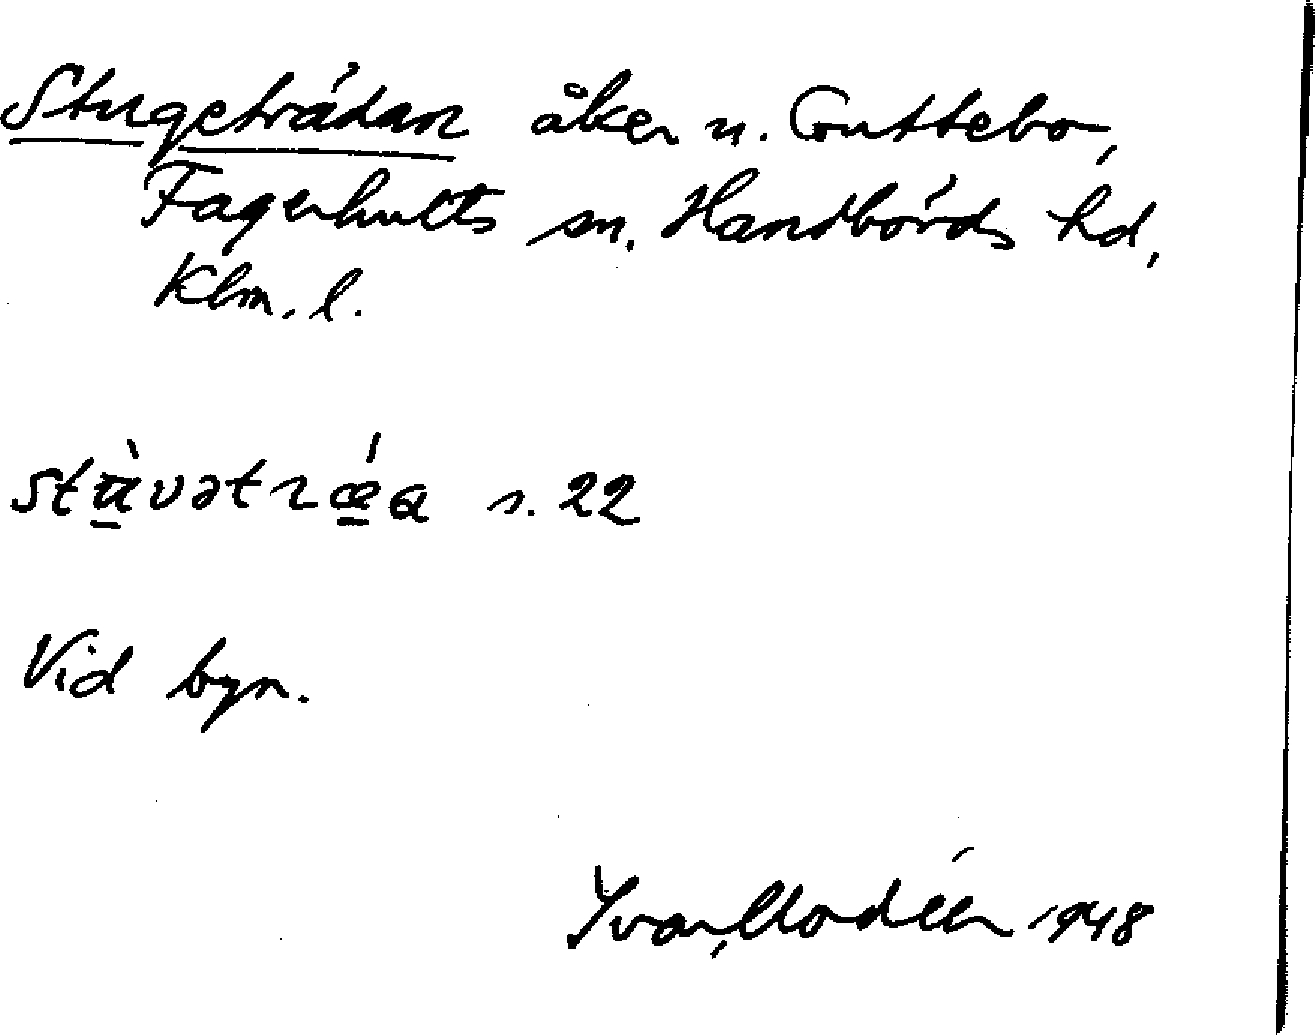 Stugeträdan åker u. Guttebo,
Fagerhults sn. Handbörds hd,
Klm. l.
stùvətrǽa s. 22
Vid byn.
Yvar Modéer 1948